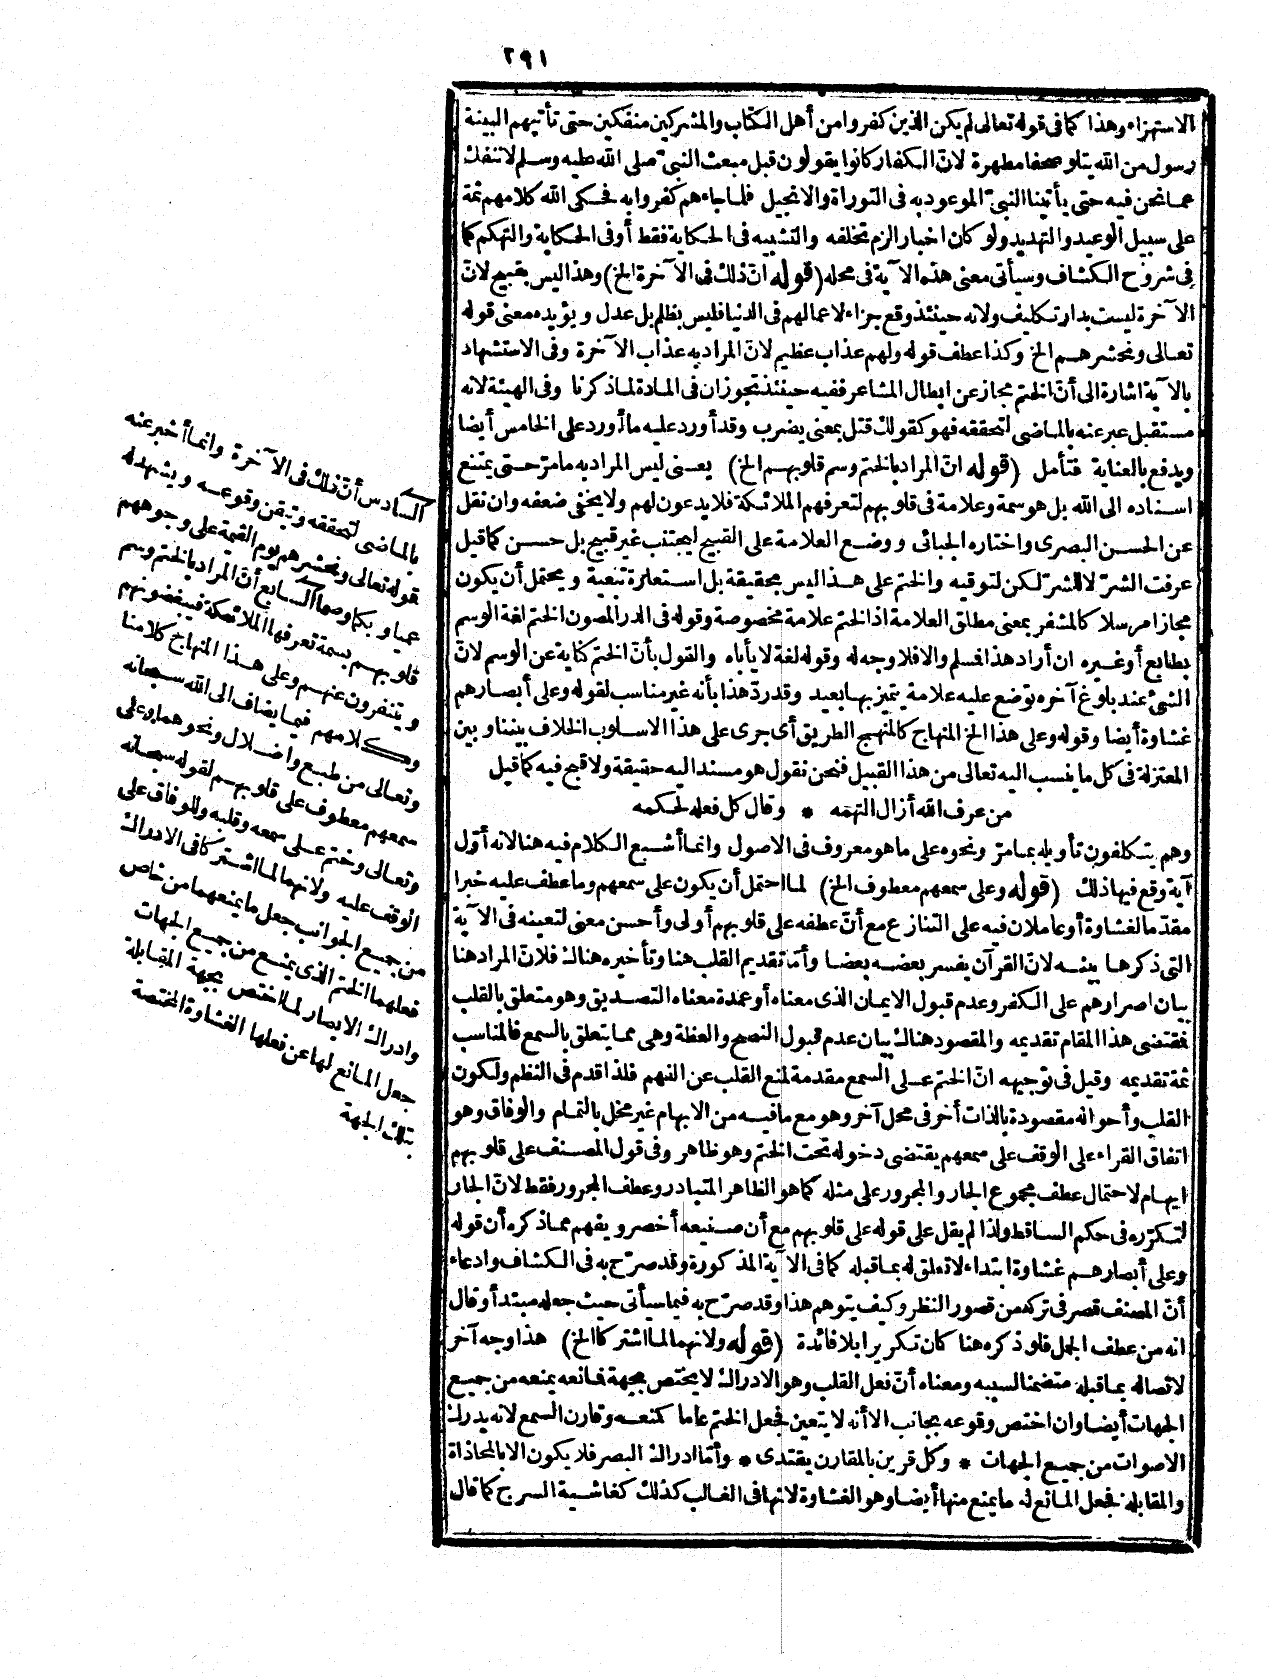 ٢٩١
الاستهزاء وهذا كما فى قوله تعالى لم يكن الذين كفروا من أهل الكتاب والمشركين منفكين حتى تأتيهم البينة
رسول من الله يتلو صحفا مطهرة لانّ الكفار كانوا يقولون قبل مبعث النبىّ صلى الله عليه وسلم لا ننفك
عما نحن فيه حتى يأتينا النبىّ الموعود به فى التوراة والانجيل فلما جاءهم كفروا به فحكى الله كلامهم ثمة
على سبيل الوعيد والتهديد ولو كان اخبارا لزم تخلفه والتشبيه فى الحكاية فقط أو فى الحكاية والتهكم كما
فى شروح الكشاف وسيأتى معنى هذه الآية فى محله (قوله انّ ذلك فى الآخرة الخ) وهذا ليس بقبيح لانّ
الآخرة ليست بدار تكليف ولانه حينئذ وقع جزاء لاعمالهم فى الدنيا فليس بظلم بل عدل ويؤيده معنى قوله
تعالى ونحشرهم الخ وكذا عطف قوله ولهم عذاب عظيم لانّ المراد به عذاب الآخرة وفى الاستشهاد
بالآية اشارة الى أنّ الختم مجاز عن ابطال المشاعر ففيه حينئذ تجوّزان فى المادة لما ذكرنا وفى الهيئة لانه
مستقبل عبر عنه بالماضى لتحققه فهو كقولك قتل بمعنى يضرب وقد أورد عليه ما أورد على الخامس أيضا
ويدفع بالعناية فتأمل (قوله انّ المراد بالختم وسم قلوبهم الخ) يعنى ليس المراد به ما مرّ حتى يمتنع
اسناده الى الله بل هو سمة وعلامة فى قلوبهم لتعرفهم الملائكة فلا يدعون لهم ولا يخفى ضعفه وان نقل
عن الحسن البصرى واختاره الجبائى ووضع العلامة على القبيح ليجتنب غير قبيح بل حسن كما قيل
عرفت الشرّ لا للشرّ لكن لتوقيه والختم على هذا ليس بحقيقة بل استعارة تبعية ويحتمل أن يكون
مجازا مرسلا كالمشفر بمعنى مطلق العلامة اذ الختم علامة مخصوصة وقوله فى الدر المصون الختم لغة الوسم
بطابع أو غيره ان أراد هذا فسلم والا فلا وجه له وقوله لغة لا يأباه والقول بأنّ الختم كناية عن الوسم لانّ
الشئ عند بلوغ آخره توضع عليه علامة يتميز بها بعيد وقد ردّ هذا بأنه غير مناسب لقوله وعلى أبصارهم
غشاوة أيضا وقوله وعلى هذا الخ المنهاج كالمنهج الطريق أى جرى على هذا الاسلوب الخلاف بيننا وبين
المعتزلة فى كل ما ينسب اليه تعالى من هذا القبيل فنحن نقول هو مسند اليه حقيقة ولا قبح فيه كما قيل
من عرف الله أزال التهمه * وقال كل فعله لحكمه
وهم يتكلفون تأويله بما مرّ ونحوه على ما هو معروف فى الاصول وانما أشبع الكلام فيه هنا لانه أوّل
آية وقع فيها ذلك (قوله وعلى سمعهم معطوف الخ) لما احتمل أن يكون على سمعهم وما عطف عليه خبرا
مقدّما لغشاوة أو عاملان فيه على التنازع مع أنّ عطفه على قلوبهم أولى وأحسن معنى لتعينه فى الآية
التى ذكرها بينه لانّ القرآن يفسر بعضه بعضا وأمّا تقديم القلب هنا وتأخيره هنالك فلانّ المراد هنا
بيان اصرارهم على الكفر وعدم قبول الايمان الذى معناه أو عمدة معناه التصديق وهو متعلق بالقلب
فمقتضى هذا المقام تقديمه والمقصود هنالك بيان عدم قبول النصح والعظة وهى مما يتعلق بالسمع فالمناسب
ثمة تقديمه وقيل فى توجيهه انّ الختم على السمع مقدمة لمنع القلب عن الفهم فلذا قدم فى النظم ولكون
القلب وأحواله مقصودة بالذات أخر فى محل آخر وهو مع ما فيه من الابهام غير مخل بالتمام والوفاق وهو
اتفاق القراء على الوقف على سمعهم يقتضى دخوله تحت الختم وهو ظاهر وفى قول المصنف على قلوبهم
ايهام لاحتمال عطف مجموع الجار والمجرور على مثله كما هو الظاهر المتبادر وعطف المجرور فقط لانّ الجار
لتكرّره فى حكم الساقط ولذا لم يقل على قوله على قلوبهم مع أن صنيعه أخصر ويفهم مما ذكره أن قوله
وعلى أبصارهم غشاوة ابتداء لا تعلق له بما قبله كما فى الآية المذكورة وقد صرّح به فى الكشاف وادعاء
أنّ المصنف قصر فى تركه من قصور النظر وكيف يتوهم هذا وقد صرّح به فيما سيأتى حيث جعله مبتدأ وقال
انه من عطف الجمل فلو ذكره هنا كان تكريرا بلا فائدة (قوله ولانهما لما اشتركا الخ) هذا وجه آخر
لاتصاله بما قبله متضمنا لسببه ومعناه أنّ فعل القلب وهو الادراك لا يختص بجهة فمانعه يمنعه من جميع
الجهات أيضا وان اختص وقوعه بجانب الا أنه لا يتعين فجعل الختم عاما كمنعه وقارن السمع لانه يدرك
الاصوات من جميع الجهات * وكل قرين بالمقارن يقتدى * وأمّا ادراك البصر فلا يكون الا بالمحاذاة
والمقابلة فجعل المانع له ما يمنع منها أيضا وهو الغشاوة لانها فى الغالب كذلك كغاشية السرج كما قال
السادس أنّ ذلك فى الآخرة وانما أخبر عنه
بالماضى لتحققه وتيقن وقوعه ويشهد له
قوله تعالى ونحشرهم يوم القيمة على وجوههم
عميا وبكما وصما السابع أنّ المراد بالختم وسم
قلوبهم بسمة تعرفها الملائكة فيبغضونهم
ويتنفرون عنهم وعلى هذا المنهاج كلامنا
وكلامهم فيما يضاف الى الله سبحانه
وتعالى من طبع واضلال ونحوهما وعلى
سمعهم معطوف على قلوبهم لقوله سبحانه
وتعالى وختم على سمعه وقلبه وللوفاق على
الوقف عليه ولانهما لما اشتركا فى الادراك
من جميع الجوانب جعل ما يمنعهما من خاص
فعلهما الختم الذى يمنع من جميع الجهات
وادراك الابصار لما اختص بجهة المقابلة
جعل المانع لها عن فعلها الغشاوة المختصة
بتلك الجهة